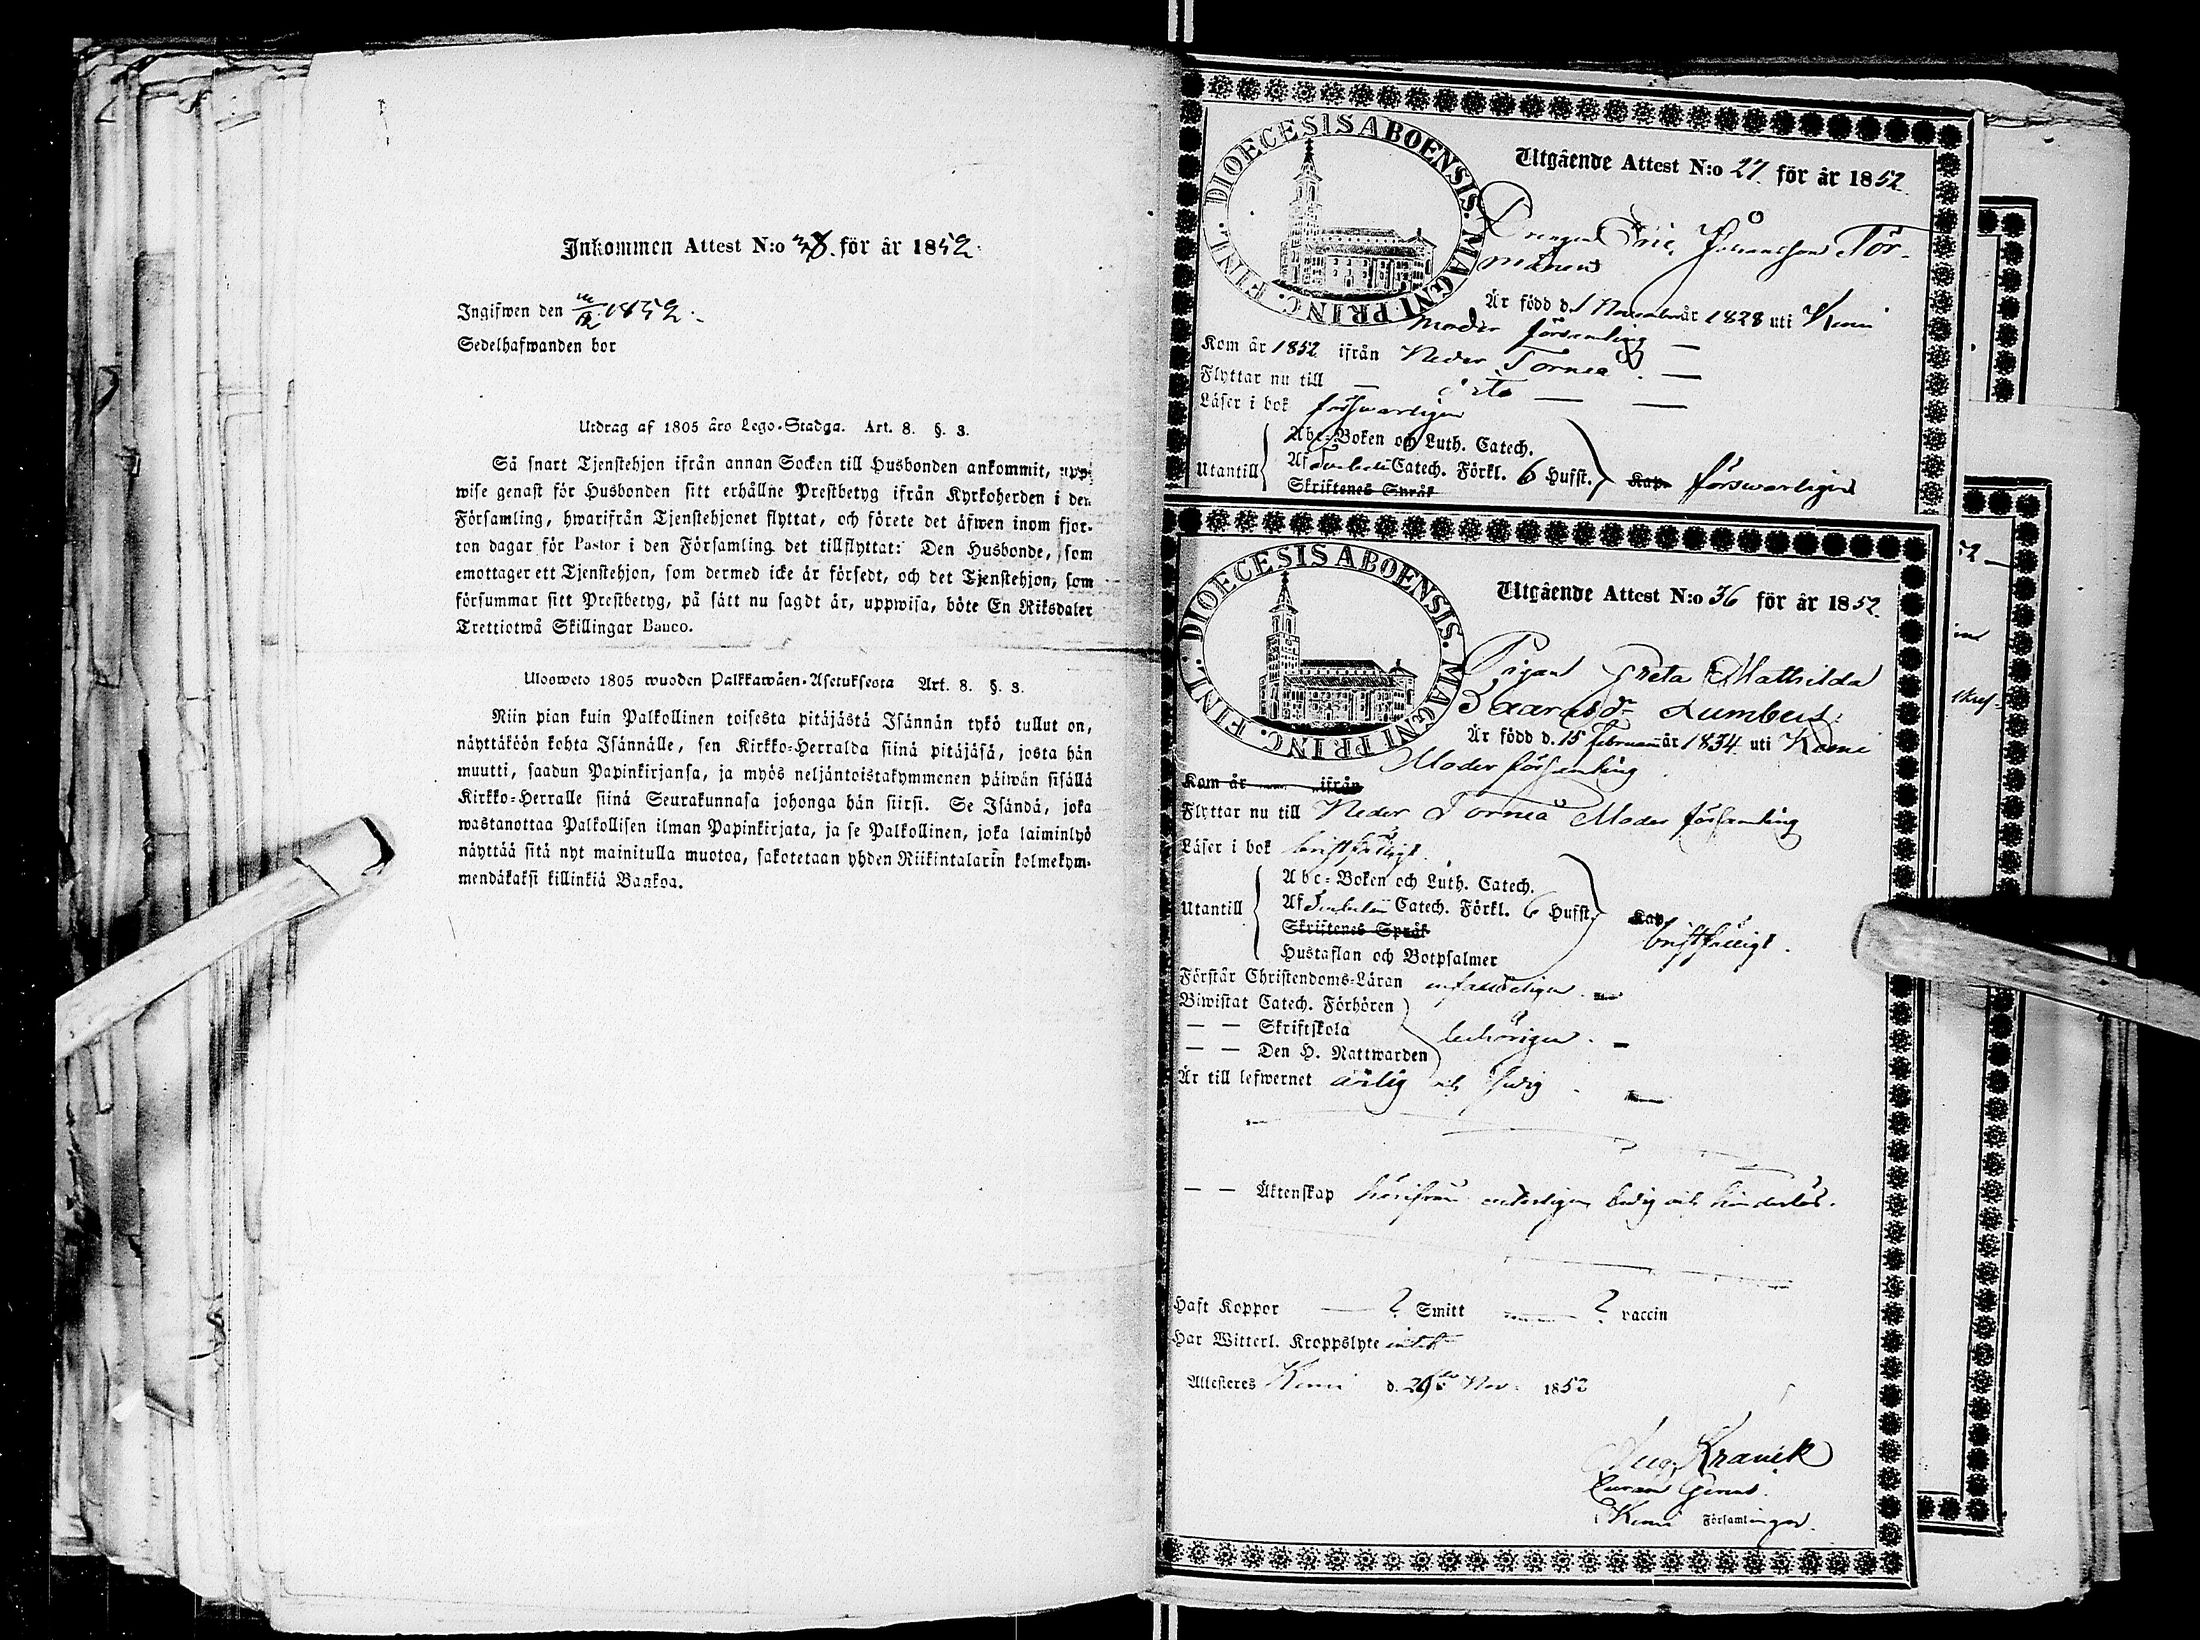 Inkommen Attest N:o 38. för år 1852.
Ingifwen den 1852.
Sedelhafwanden bor
Utdrag af 1805 års Lego-Stadga. Art. 8. §. 3.
Så snart Tjenstehjon ifrån annan Socken till Husbonden ankommit, upp-
wise genast för Husbonden sitt erhållne Prestbetyg ifrån Kyrkoherden i den
Församling, hwarifrån Tjenstehjonet flyttat, och förete det äfwen inom fjor-
ton dagar för Pastor i den Församling det tillflyttat: Den Husbonde, som
emottager ett Tjenstehjon, som dermed icke är försedt, och det Tjenstehjon, som
försummar sitt Prestbetyg, på sätt nu sagdt är, uppwisa, böte En Riksdaler
Trettiotwå Skillingar Banco.
Ulosweto 1805 wuoden Palkkawäen-Asetuksesta Art. 8. §. 3.
Niin pian kuin Palkollinen toisesta pitäjästä Isännän tykö tullut on,
näyttäköön kohta Isännälle, sen Kirkko-Herralda siinä pitäjäsä, josta hän
muutti, saadun Papinkirjansa, ja myös neljäntoistakymmenen päiwän sisällä
Kirkko-Herralle siinä Seurakunnasa johonga hän siirsi. Se Isändä, joka
wastanottaa Palkollisen ilman Papinkirjata, ja se Palkollinen, joka laiminlyö
näyttää sitä nyt mainitulla muotoa, sakotetaan yhden Riikintalarin kolmekym-
mendäkaksi killinkiä Bankoa.
DIOECESIS ABOENSIS. MAGNI PRINC. FINL.
Utgående Attest N:o 27. för år 1852.
Drengen Eric Johansson Tör-
mänen
Är född d. 1 November år 1828 uti Kemi
moder församling —
Kom år 1852 ifrån Neder Torneå. —
Flyttar nu till — dito — —
Läser i bok försvarligen
Utantill
Abc-Boken och Luth. Catech.
Af Catech. Förkl. 6 Hufst. Kap. försvarligen
Skriftenes Språk
DIOECESIS ABOENSIS. MAGNI PRINC. FINL.
Utgående Attest N:o 36 för år 1852.
Pigan Greta Mathilda
Lumbus.
Är född d. 15 Februari år 1834 uti Kemi
Moder församling
Kom år ifrån
Flyttar nu till Neder Torneå Moder församling
Läser i bok bristfälligt.
Utantill
Abc-Boken och Luth. Catech.
Af Catech. Förkl. 6 Hufst. Kap
Skriftenes Språk bristfälligt.
Hustaflan och Botpsalmer
Förstår Christendoms-Läran enfaldeligen. —
Biwistat Catech. Förhören
— — Skriftskola behörigen. —
— — Den H. Nattwarden
Är till lefwernet ärlig och sedig. —
— — Äktenskap härifrån ledig och hinderlös.
Haft Koppor — ? Smitt — ? vaccin
Har Witterl. Kroppslyte intet
Attesteres Kemi d. 29de Nov. 1852
Aug. Kranck
i Kemi Församlingar.